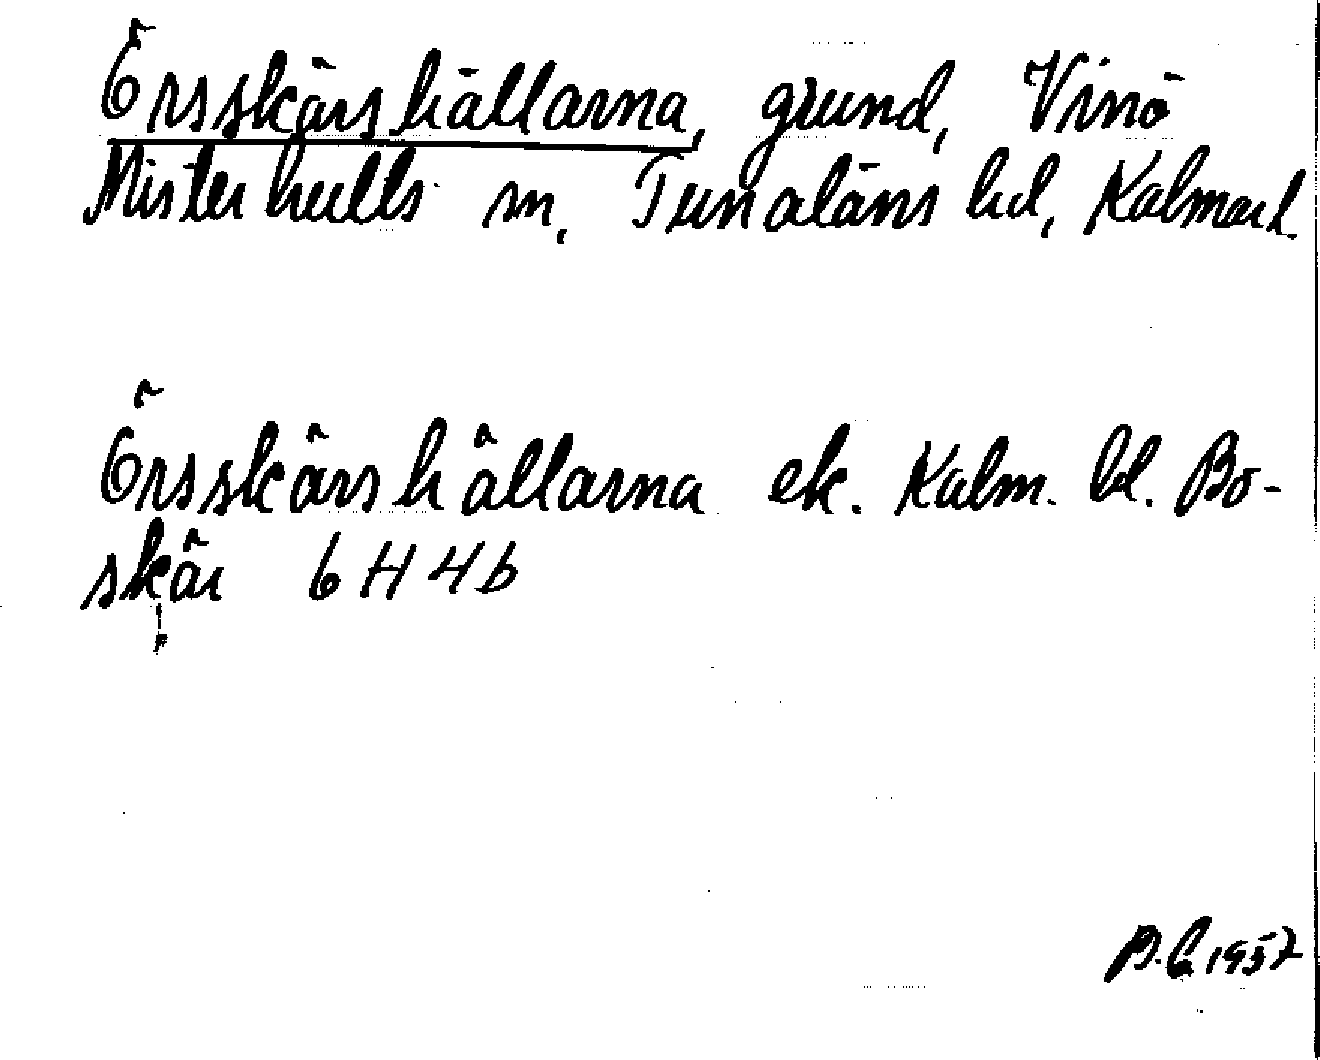 Örsskärshällarna, grund, Vinö
Misterhults sn, Tunaläns hd, Kalmar l.
Örsskärshällarna ek. Kalm. bl. Bo-
skär 6H4b
B.E. 1957